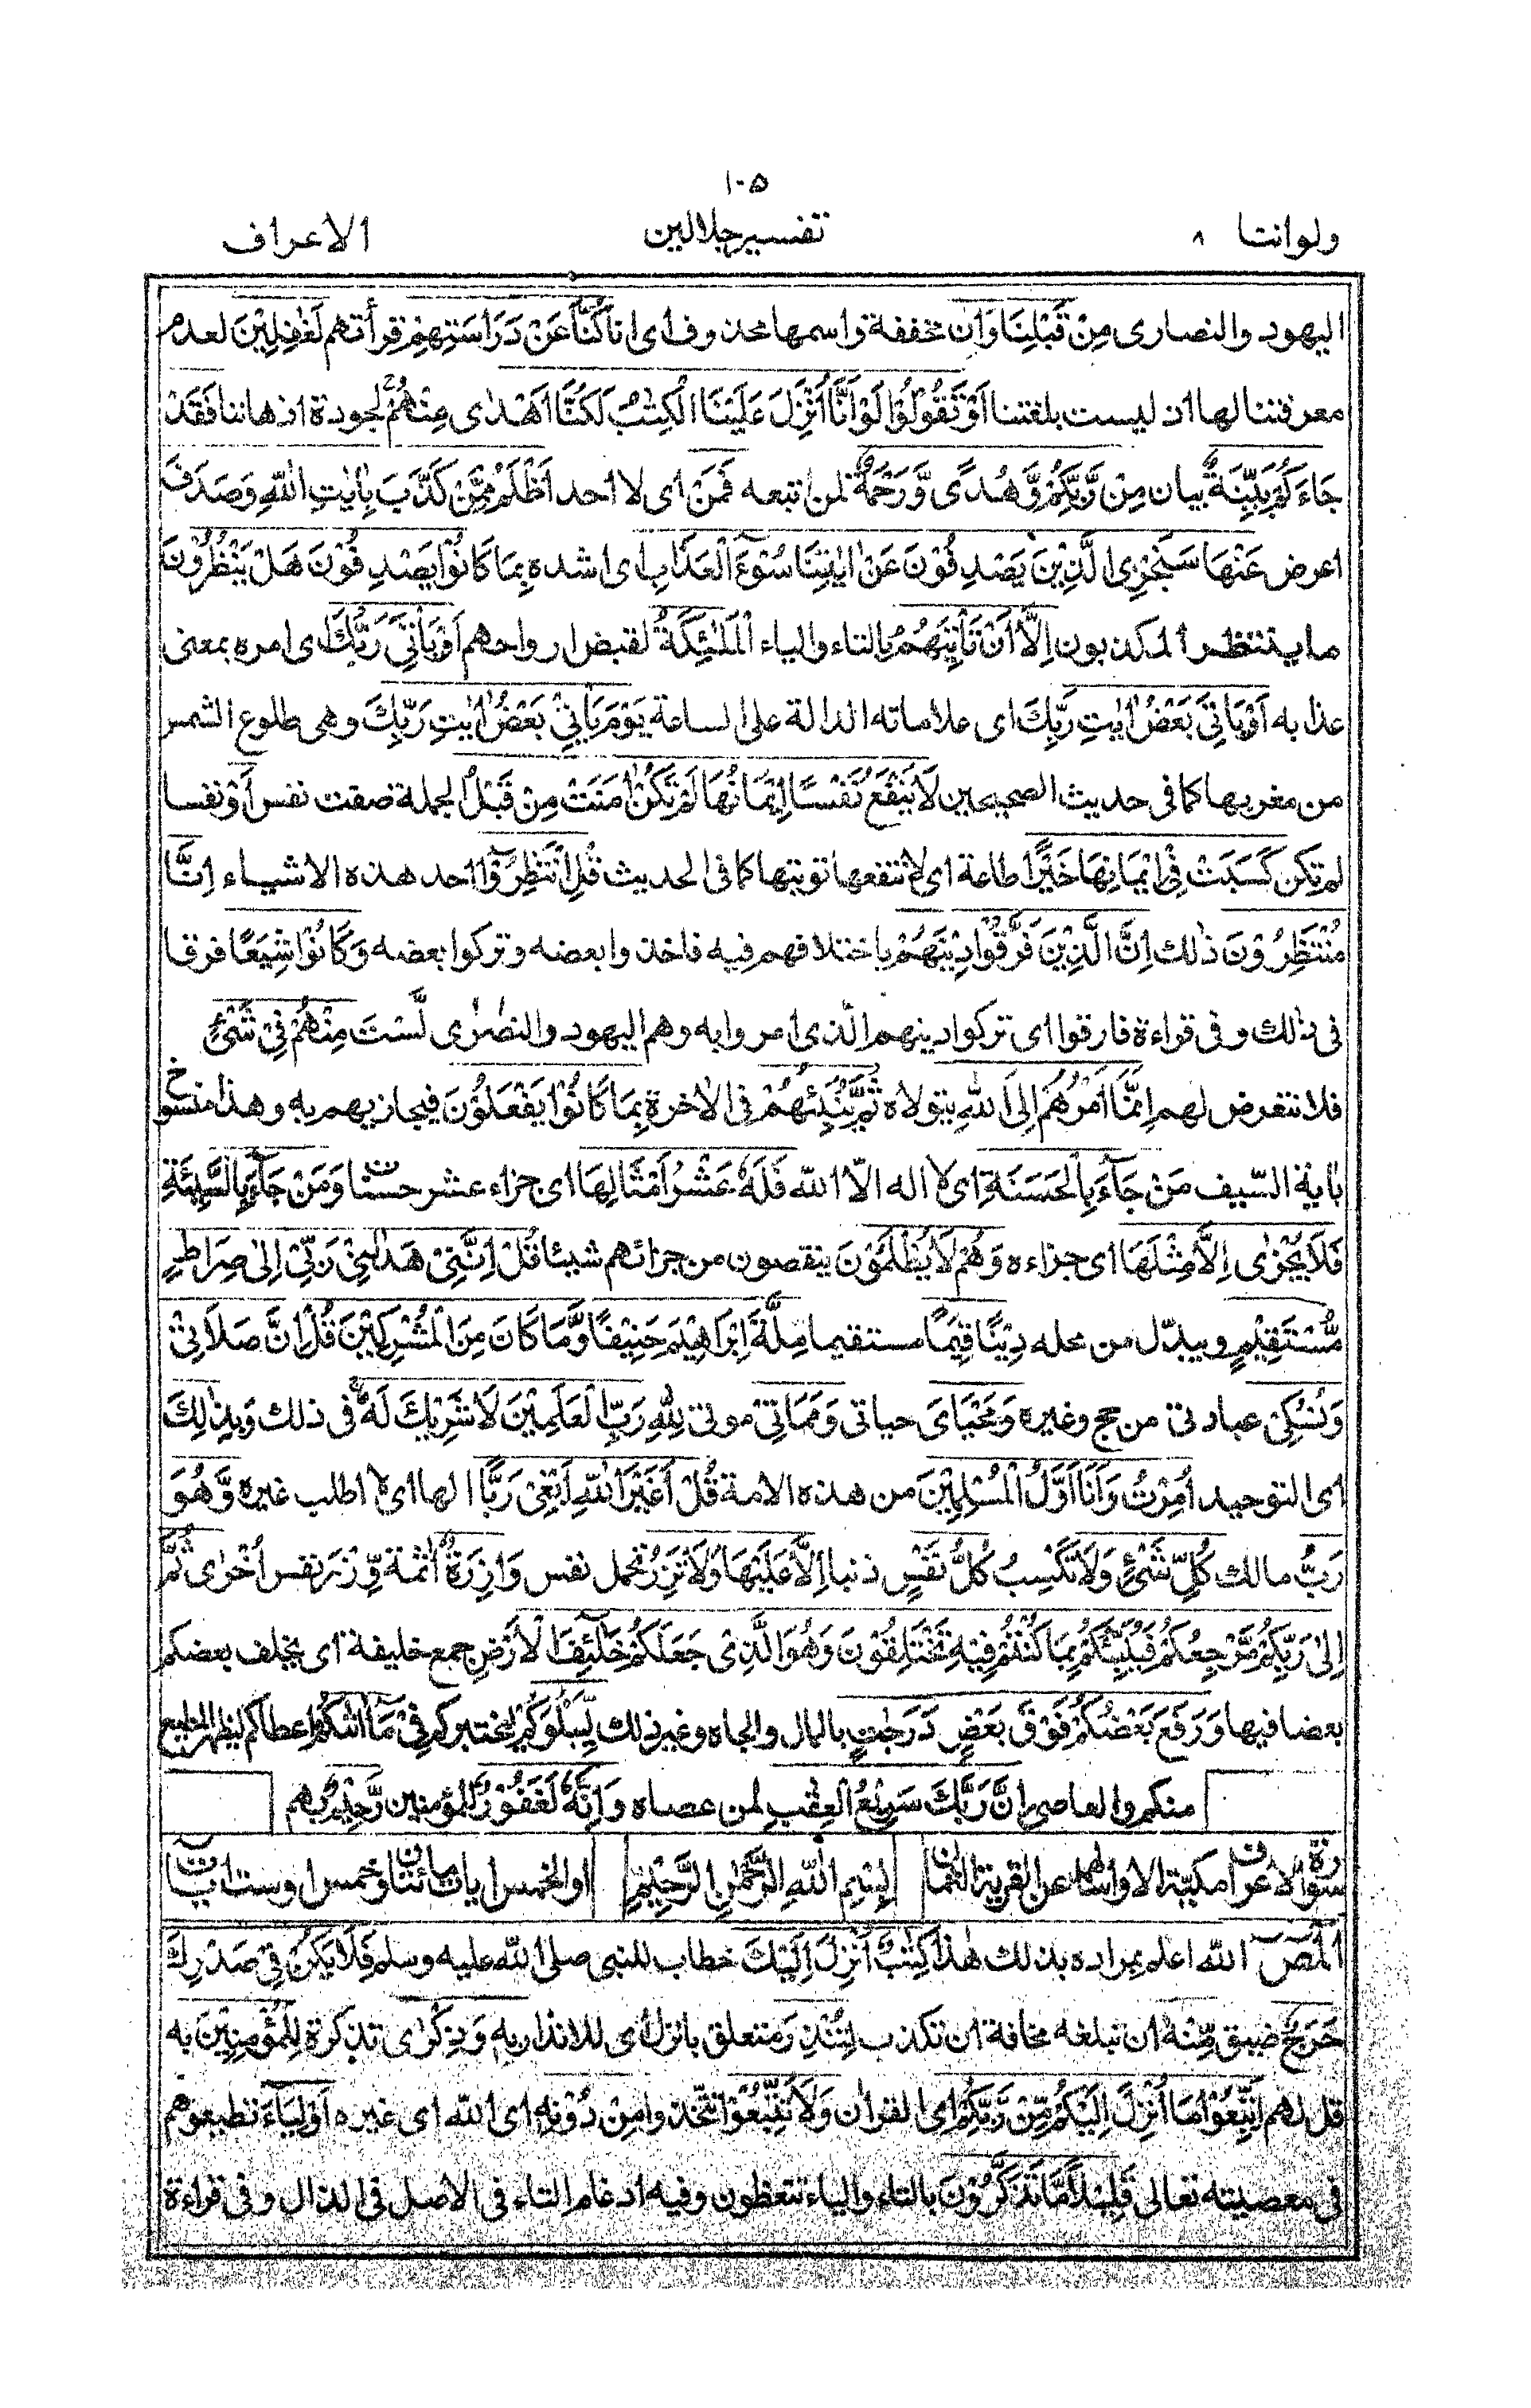 ١٠٥
ولو اننا ٨ تفسير جلالين الاعراف
اليهود والنصارى مِنْ قَبْلِنَا وَاِنْ مخففة واسمها محذوف اى انا كُنَّا عَنْ دِرَاسَتِهِمْ قرأتهم لَغٰفِلِيْنَ لعدم
معرفتنا لها اذ ليست بلغتنا اَوْ تَقُوْلُوْا لَوْ اَنَّا اُنْزِلَ عَلَيْنَا الْكِتٰبُ لَكُنَّا اَهْدٰى مِنْهُمْ لجودة اذهاننا فَقَدْ
جَاءَكُمْ بَيِّنَةٌ بيان مِنْ رَّبِّكُمْ وَهُدًى وَّرَحْمَةٌ لمن اتبعه فَمَنْ اى لا احد اَظْلَمُ مِمَّنْ كَذَّبَ بِاٰيٰتِ اللّٰهِ وَصَدَفَ
اعرض عَنْهَا سَنَجْزِى الَّذِيْنَ يَصْدِفُوْنَ عَنْ اٰيٰتِنَا سُوْٓءَ الْعَذَابِ اى اشده بِمَا كَانُوْا يَصْدِفُوْنَ هَلْ يَنْظُرُوْنَ
ما ينتظر المكذبون اِلَّا اَنْ تَاْتِيَهُمُ بالتاء والياء الْمَلٰئِكَةُ لقبض ارواحهم اَوْ يَاْتِىَ رَبُّكَ اى امره بمعنى
عذابه اَوْ يَاْتِىَ بَعْضُ اٰيٰتِ رَبِّكَ اى علاماته الدالة على الساعة يَوْمَ يَاْتِىْ بَعْضُ اٰيٰتِ رَبِّكَ وهى طلوع الشمس
من مغربها كما فى حديث الصحيحين لَا يَنْفَعُ نَفْسًا اِيْمَانُهَا لَمْ تَكُنْ اٰمَنَتْ مِنْ قَبْلُ الجملة صفت نفس اَوْ نفسا
لم تكن كَسَبَتْ فِىْ اِيْمَانِهَا خَيْرًا طاعة اى لا تنفعها توبتها كما فى الحديث قُلِ انْتَظِرُوْٓا احد هذه الاشياء اِنَّا
مُنْتَظِرُوْنَ ذٰلك اِنَّ الَّذِيْنَ فَرَّقُوْا دِيْنَهُمْ باختلافهم فيه فاخذوا بعضه وتركوا بعضه وَكَانُوْا شِيَعًا فرقا
فى ذالك وفى قراءة فارقوا اى تركوا دينهم الّذى امروا به وهم اليهود والنصٰرٰى لَّسْتَ مِنْهُمْ فِىْ شَىْءٍ
فلا تتعرض لهم اِنَّمَا اَمْرُهُمْ اِلَى اللّٰهِ يتولاه ثُمَّ يُنَبِّئُهُمْ فى الاٰخرة بِمَا كَانُوْا يَفْعَلُوْنَ فيجازيهم به وهذا منسوخ
باٰية السّيف مَنْ جَآءَ بِالْحَسَنَةِ اى لا اله الّا اللّٰه فَلَهٗ عَشْرُ اَمْثَالِهَا اى جزاء عشر حسنات وَمَنْ جَآءَ بِالسَّيِّئَةِ
فَلَا يُجْزٰٓى اِلَّا مِثْلَهَا اى جزاءه وَهُمْ لَا يُظْلَمُوْنَ ينقصون من جزائهم شيئا قُلْ اِنَّنِىْ هَدٰىنِىْ رَبِّىْ اِلٰى صِرَاطٍ
مُّسْتَقِيْمٍ ويبدّل من محله دِيْنًا قِيَمًا مستقيما مِلَّةَ اِبْرَاهِيْمَ حَنِيْفًا وَّمَا كَانَ مِنَ الْمُشْرِكِيْنَ قُلْ اِنَّ صَلَاتِىْ
وَنُسُكِىْ عبادتى من حج وغيره وَمَحْيَاىَ حياتى وَمَمَاتِىْ موتى لِلّٰهِ رَبِّ الْعٰلَمِيْنَ لَا شَرِيْكَ لَهٗ فى ذلك وَبِذٰلِكَ
اى التوحيد اُمِرْتُ وَاَنَا اَوَّلُ الْمُسْلِمِيْنَ من هذه الامة قُلْ اَغَيْرَ اللّٰهِ اَبْغِىْ رَبًّا الها اى لا اطلب غيره وَّهُوَ
رَبُّ مالك كُلِّ شَىْءٍ وَلَا تَكْسِبُ كُلُّ نَفْسٍ ذنبا اِلَّا عَلَيْهَا وَلَا تَزِرُ تحمل نفس وَازِرَةٌ اٰثمة وِّزْرَ نفس اُخْرٰى ثُمَّ
اِلٰى رَبِّكُمْ مَّرْجِعُكُمْ فَيُنَبِّئُكُمْ بِمَا كُنْتُمْ فِيْهِ تَخْتَلِفُوْنَ وَهُوَ الَّذِىْ جَعَلَكُمْ خَلٰٓئِفَ الْاَرْضِ جمع خليفة اى يخلف بعضكم
بعضا فيها وَرَفَعَ بَعْضَكُمْ فَوْقَ بَعْضٍ دَرَجٰتٍ بالمال والجاه وغير ذلك لِّيَبْلُوَكُمْ ليختبركم فِىْ مَآ اٰتٰىكُمْ اعطاكم ليظهر المطيع
منكم والعاصى اِنَّ رَبَّكَ سَرِيْعُ الْعِقٰبِ لمن عصاه وَاِنَّهٗ لَغَفُوْرٌ للمؤمنين رَّحِيْمٌ بهم
سورة الاعراف مكية الا واسألهم عن القرية الثمان
بِسْمِ اللّٰهِ الرَّحْمٰنِ الرَّحِيْمِ
او الخمس ايات مائتان وخمس او ست ايات
الٓمٓصٓ اللّٰه اعلم بمراده بذلك هٰذا كِتٰبٌ اُنْزِلَ اِلَيْكَ خطاب للنبى صلى اللّٰه عليه وسلم فَلَا يَكُنْ فِىْ صَدْرِكَ
حَرَجٌ ضيق مِّنْهُ ان تبلغه مخافة ان تكذب لِتُنْذِرَ متعلق بانزل اى للانذار بِهٖ وَذِكْرٰى تذكرة لِلْمُؤْمِنِيْنَ به
قل لهم اِتَّبِعُوْا مَا اُنْزِلَ اِلَيْكُمْ مِّنْ رَّبِّكُمْ اى القراٰن وَلَا تَتَّبِعُوْا تتّخذوا مِنْ دُوْنِهٖ اى اللّٰه اى غيره اَوْلِيَآءَ تطيعوهم
فى معصيته تعالى قَلِيْلًا مَّا تَذَكَّرُوْنَ بالتاء والياء تتعظون وفيه ادغام التاء فى الاصل فى الذال وفى قراءة